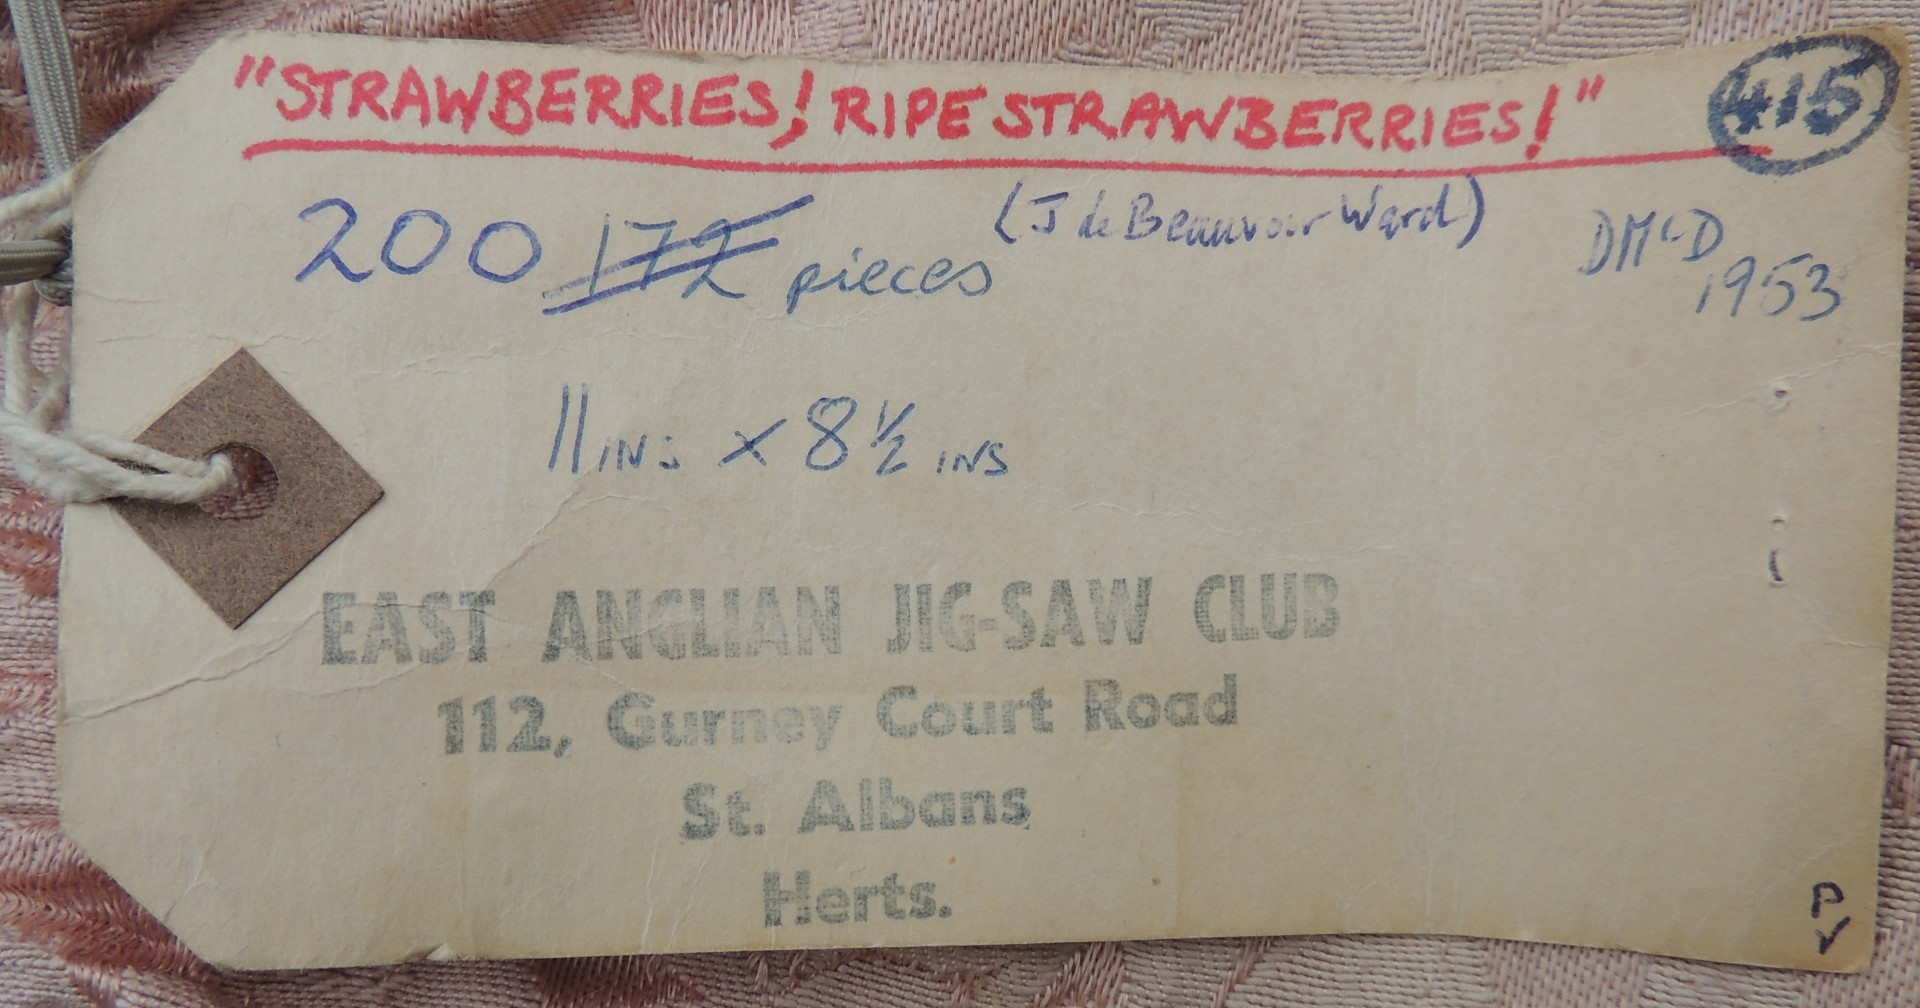 "STRAWBERRIES! RIPE STRAWBERRIES!" 415
200 172 pieces (J de Beauvoir Ward) DMcD
1953
11 INS x 8 ½ INS
EAST ANGLIAN JIG-SAW CLUB
112, Gurney Court Road
St. Albans
Herts.
P